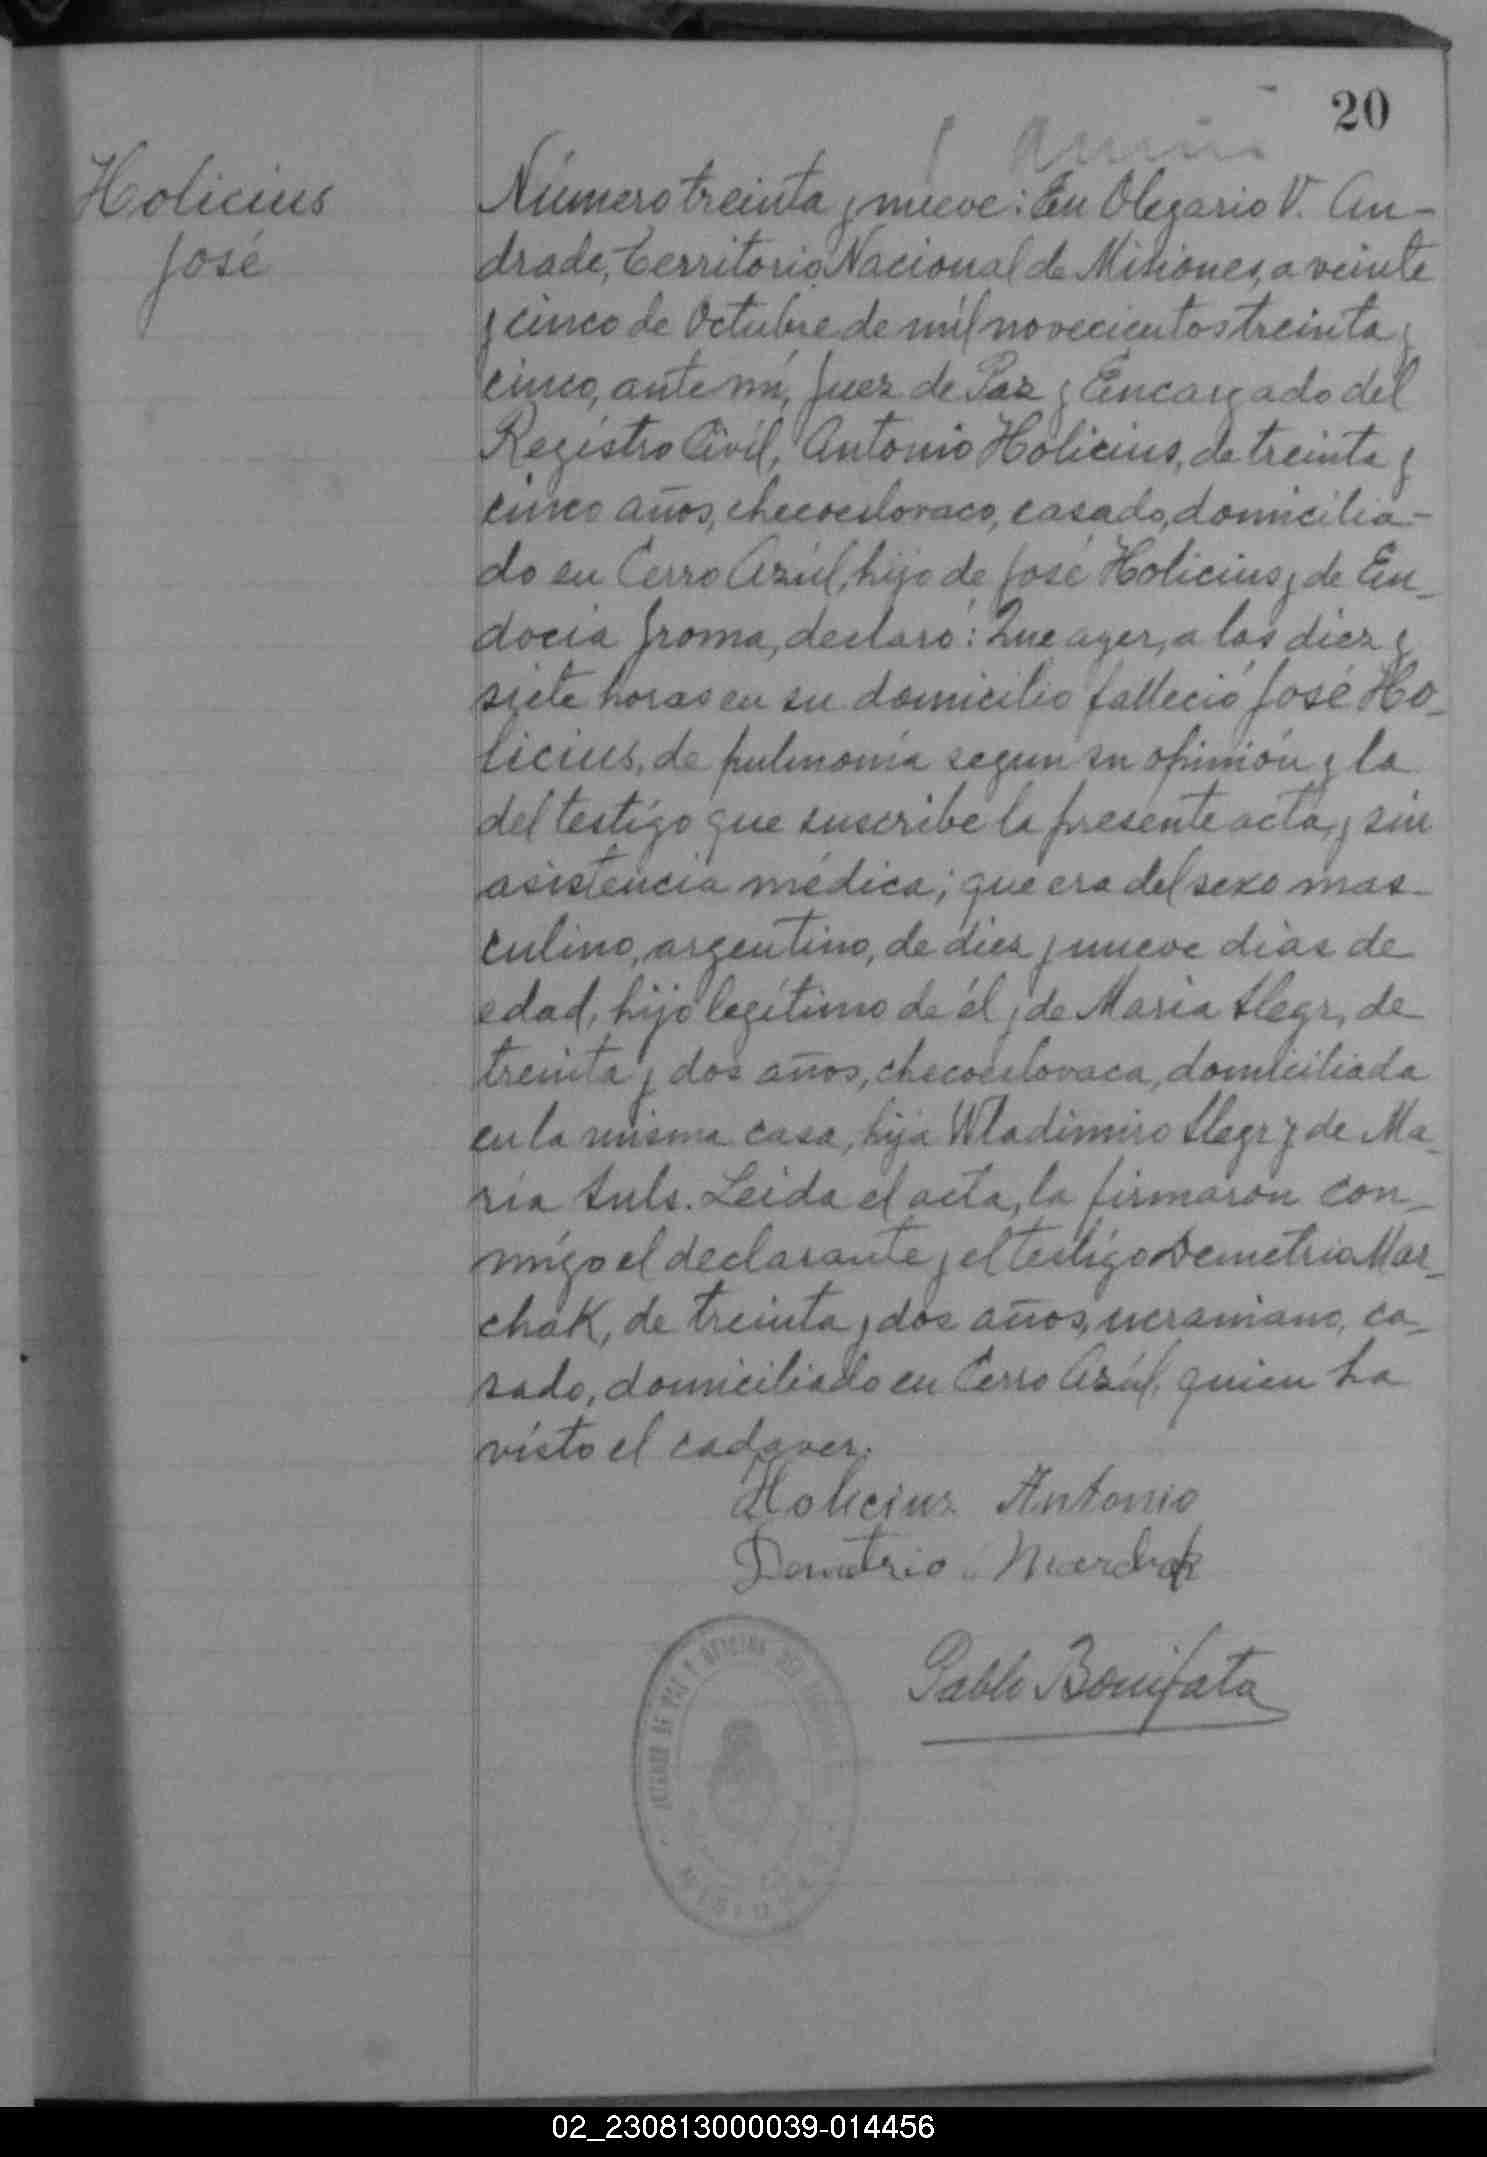 20
Holicius
José
Número treinta y nueve: En Olegario V. An-
drade, Territorio Nacional de Misiones, a veinte
y cinco de Octubre de mil novecientos treinta y
cinco, ante mí, Juez de Paz y Encargado del
Registro Civil, Antonio Holicius, de treinta y
cinco años, checoeslovaco, casado, domicilia-
do en Cerro Azúl, hijo de José Holicius y de Eu-
docia Jroma, declaró: Que ayer, a las diez y
siete horas en su domicilio falleció José Ho-
licius, de pulmonía segun su opinión y la
del testígo que suscribe la presente acta, y sin
asistencia médica; que era del sexo mas-
culino, argentino, de diez y nueve dias de
edad, hijo legítimo de él y de María Slegr, de
treinta y dos años, checoeslovaca, domiciliada
en la misma casa, hija Wladimiro Slegr y de Ma-
ría Suls. Leida el acta, la firmaron con-
mígo el declarante y el testígo Demetrio Mar-
chak, de treinta y dos años, ucraniano, ca-
sado, domiciliado en Cerro Azúl, quien ha
vísto el cadaver.
Holicius Antonio
Demetrio Marchak
Pablo Bonifata
JUZGADO DE PAZ Y OFICINA DEL
MISIONES
02_230813000039-014456